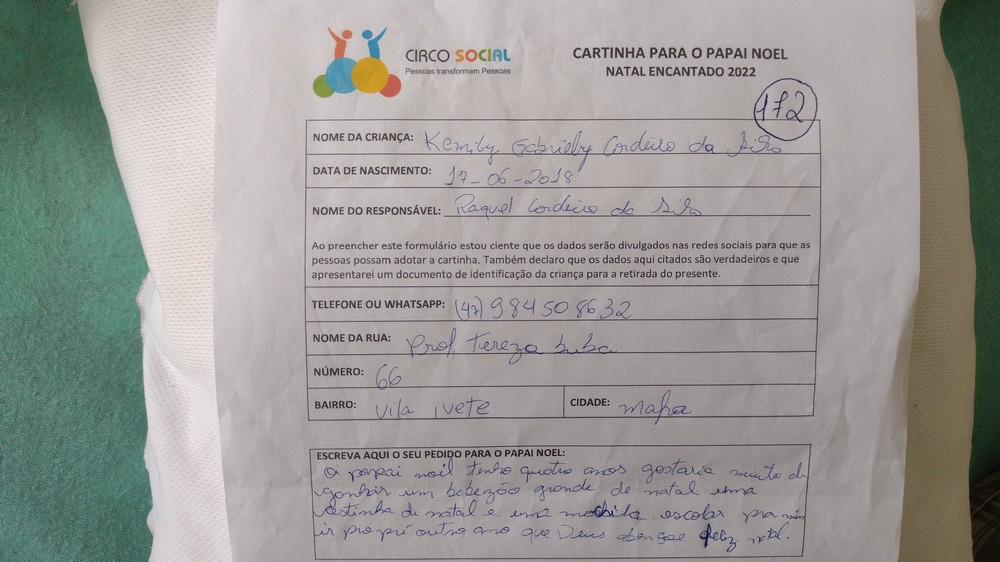 CIRCO SOCIAL
Pessoas transformam Pessoas
CARTINHA PARA O PAPAI NOEL
NATAL ENCANTADO 2022
172
NOME DA CRIANÇA: Kemily Gabrielly Cordeiro da Silva
DATA DE NASCIMENTO: 17-06-2018
NOME DO RESPONSÁVEL: Raquel Cordeiro da Silva
Ao preencher este formulário estou ciente que os dados serão divulgados nas redes sociais para que as
pessoas possam adotar a cartinha. Também declaro que os dados aqui citados são verdadeiros e que
apresentarei um documento de identificação da criança para a retirada do presente.
TELEFONE OU WHATSAPP: (47) 984508632
NOME DA RUA: Prof Tereza
NÚMERO: 66
BAIRRO: Vila ivete
CIDADE: mafra
ESCREVA AQUI O SEU PEDIDO PARA O PAPAI NOEL:
papai noil tenho quatro anos gostaria muito di
ganhar um bebezão grande de natal uma
sestinha di natal e uma mochila escolar pra mim
ir pro pré outro ano que Deus abençoe feliz natal.